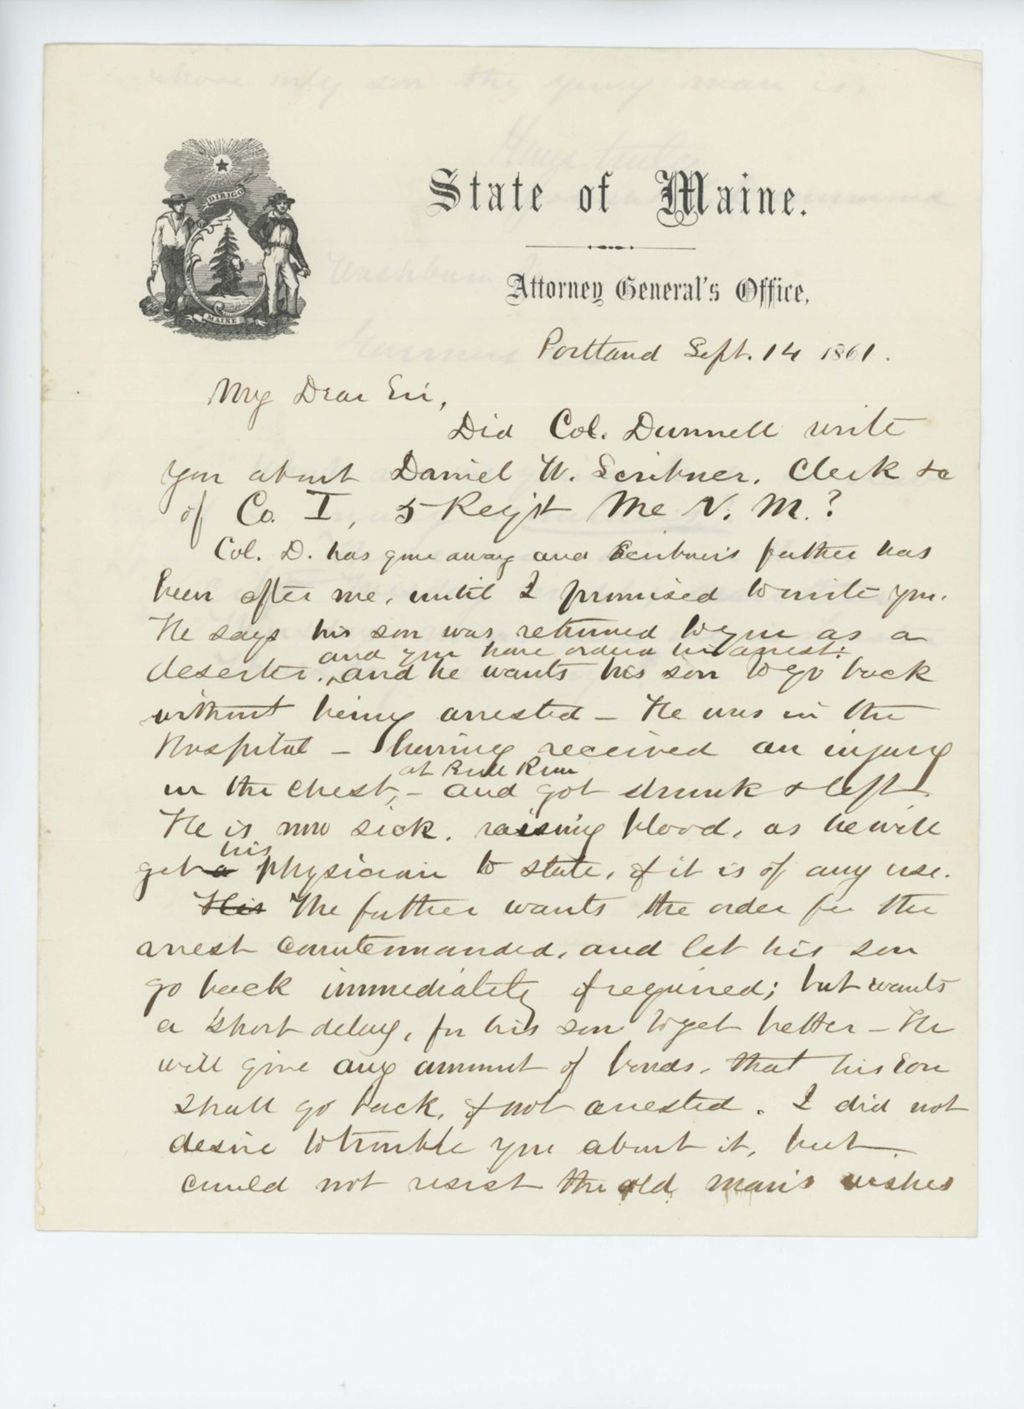 DIRIGO
MAINE
State of Maine.
Attorney General's Office,
Portland Sept. 14 1861.
My Dear Sir,
Did Col. Dunnell write
you about Daniel W. Scribner, Clerk &c
of Co. I, 5 Regt Me V. M.?
Col. D. has gone away and Scribner's father has
been after me, until I promised to write you.
He says his son was returned to you as a
and you have ordered his arrest:
deserter. and he wants his son to go back
without being arrested - He was in the
Hospital - having received an injury
at Bull Run
in the chest, - and got drunk & left
He is now sick, raising blood, as he will
his
get a physician to state, if it is of any use.
His The father wants the order for the
arrest countermanded, and let his son
go back immediately if required; but wants
a short delay, for his son to get better - He
will give any amount of bonds, that his son
shall go back, if not arrested. I did not
desire to trouble you about it, but
could not resist the old man's wishes